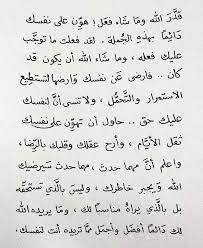 قدَّرَ الله وما شَاء فعَل! هوِّن على نفسك
دائمًا بهذه الجملة. لقد فعلت ما توجَّب
عليك فعله، وما شَاء الله أن يكون قد
كان.. فارضى عن نفسك وارضها لتستطيع
الاستمرار والتحمُّل، ولا تنسى أنَّ لنفسك
عليك حق.. حاول أن تهوِّن على نفسك
ثقل الأيَّام، وأرح عقلك وقلبك بالرِّضا،
واعلم أنَّ مهما حدث، مهما حدث سَيرضيك
الله ويجبر خاطرك، وليس بالَّذي تستحقّه
بل بالَّذي يراهُ مناسبًا لك، وما يريده الله
لك أفضل وأجمل ممَّا تريده أنت لنفسك.